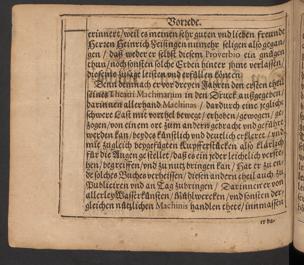 Vorrede.
erinnert / weil es meinen sehr guten vnd lieben freunde
Herren Heinrich Geisingen nunmehr seligen also gegan-
gen / daß weder er selbst diesem Proverbio ein gnügen
thun / noch sonsten solche Erben hinter ihme verlassen /
die seine zusage leisten vnd erfüllen können.
Denn demnach er vor dreyen Jahren den ersten theil
seines Theatri Machinarum in den Druck außgegeben /
darinnen allerhand Machinas / dardurch eine jegliche
schwere Last mit vortheil bewegt / erhoben / gewogen / ge-
zogen / von einem ort zum andern gebracht vnd geführt
werden kan / beydes künstlich vnd deutlich erkleret / vnd
mit zugleich beygefügten Kupfferstücken also klärlich
für die Augen gestellet / daß es ein jeder leichtlich verste-
hen / begreiffen / vnd zu nutz bringen kan / Hat er zu en-
de solches Buches verheissen / diesen andern theil auch zu
Publiciren vnd an Tag zubringen / Darinnen er von
allerley Wasserkünsten / Mühlwercken / vnd sonsten der-
gleichen nützlichen Machinis handlen thete / inmassen
er da-